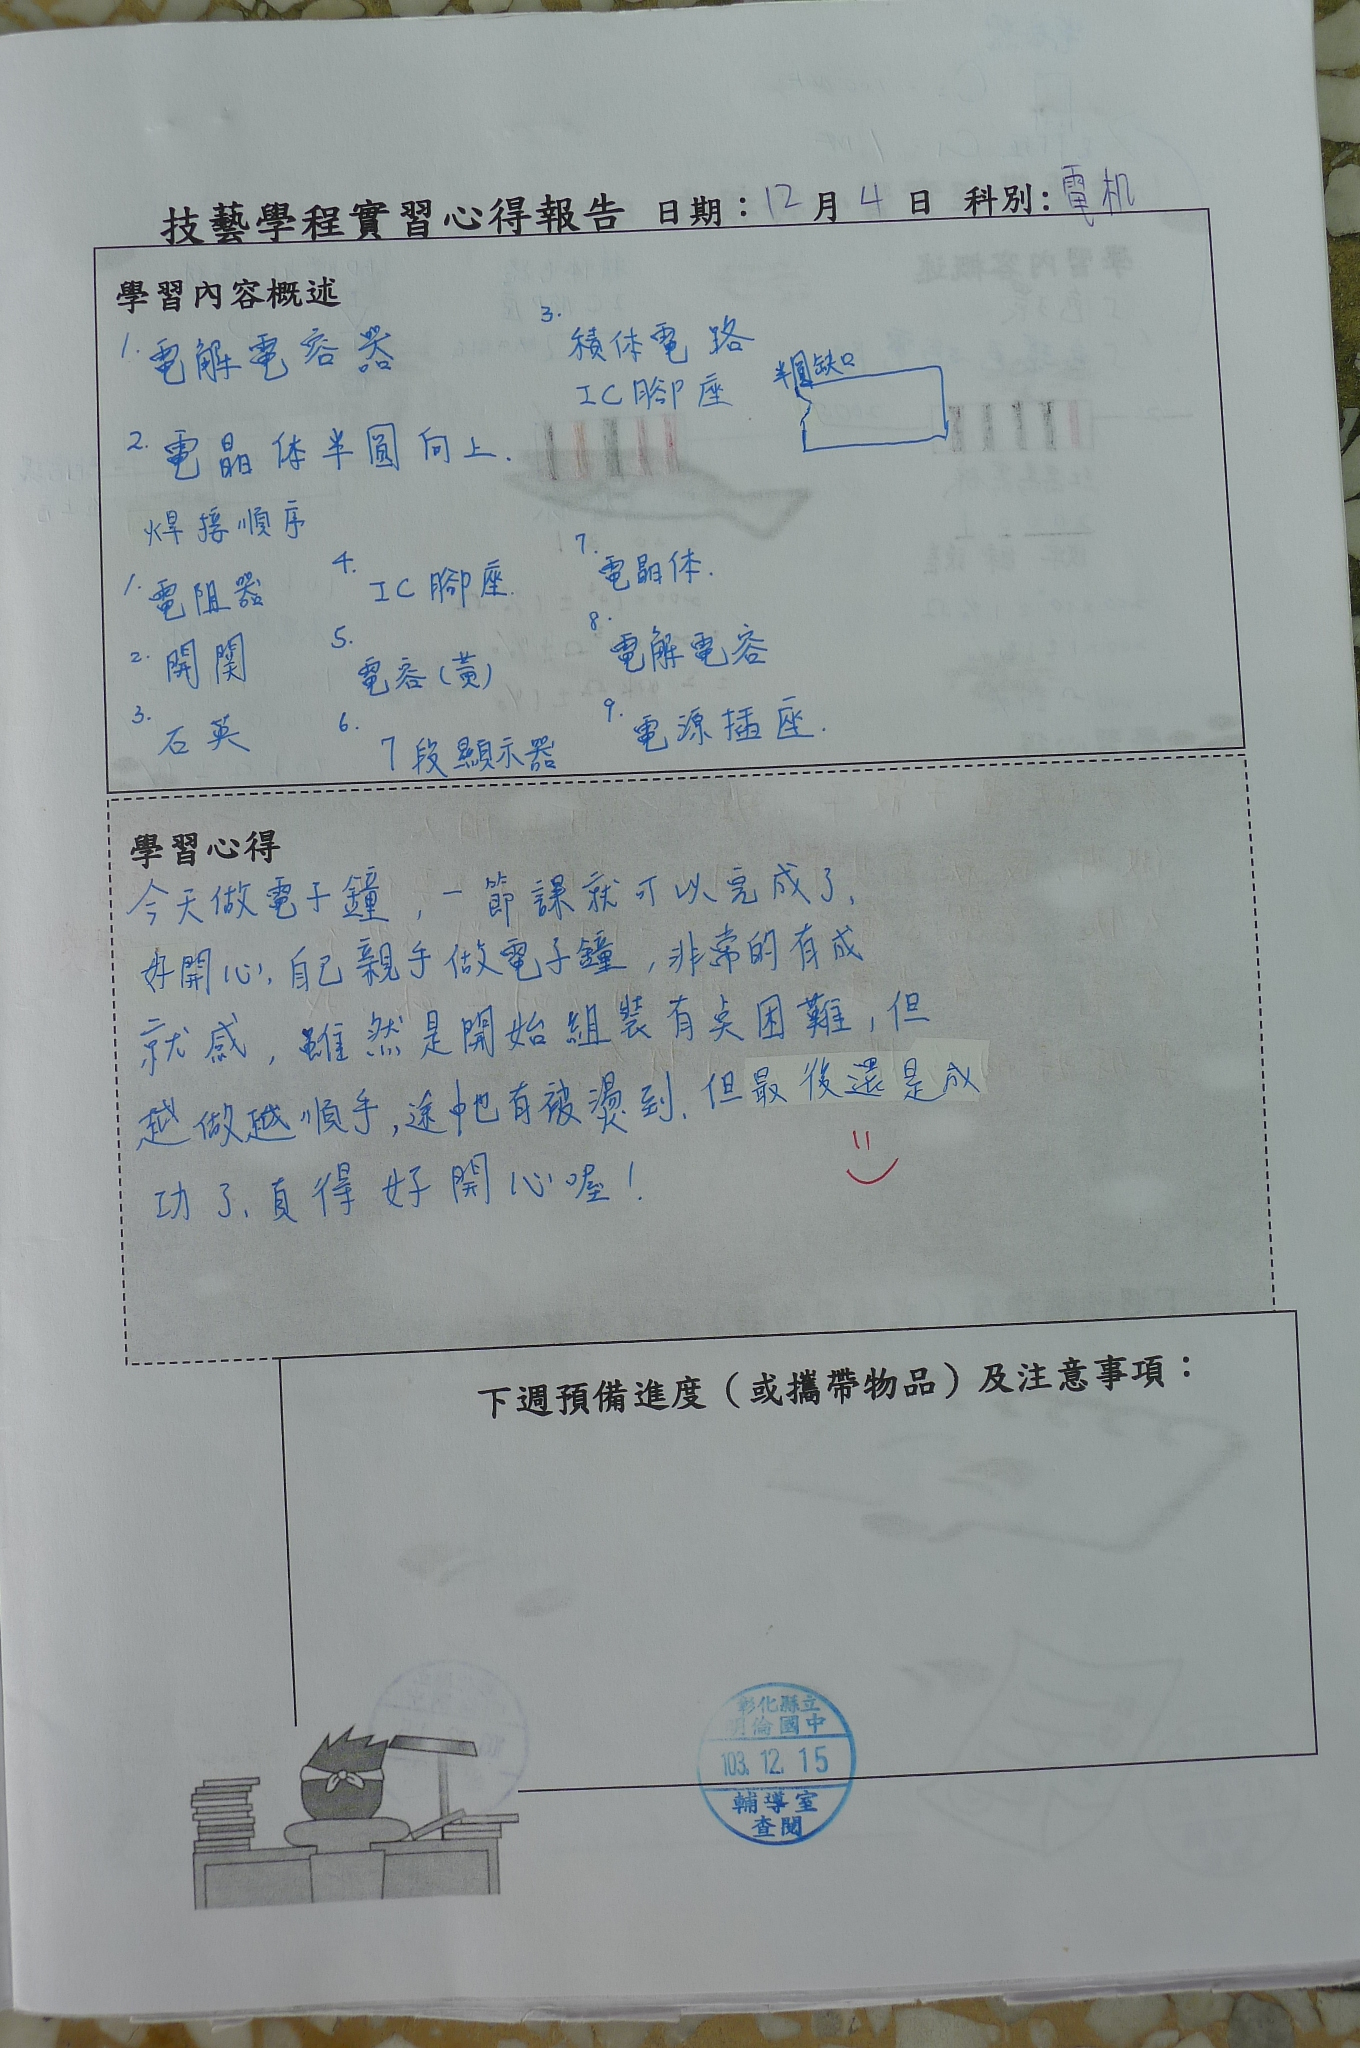 技藝學程實習心得報告 日期：12月4日 科別：電机
學習內容概述
1. 電解電容器
2. 電晶体半圓向上.
3. 積体電路
IC腳座
半圓缺口
焊接順序
1. 電阻器
2. 開関
3. 石英
4. IC腳座.
5. 電容(黃)
6. 7段顯示器
7. 電晶体.
8. 電解電容
9. 電源插座.
學習心得
今天做電子鐘，一節課就可以完成了，
好開心，自己親手做電子鐘，非常的有成
就感，雖然是開始組裝有点困難，但
越做越順手，途中也有被燙到，但最後還是成
功了，真得好開心喔！
下週預備進度（或攜帶物品）及注意事項：
彰化縣立
明倫國中
103.12.15
輔導室
查閱